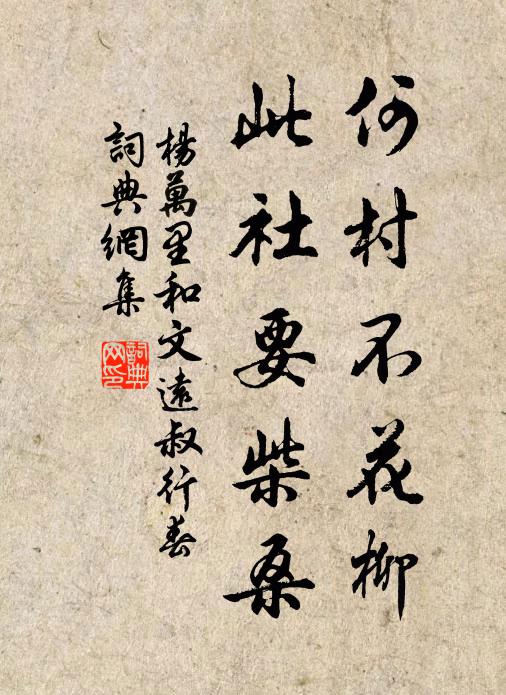 何村不花柳
此社要柴桑
楊萬里和文遠叔行春
詞典網集
詞典
网印